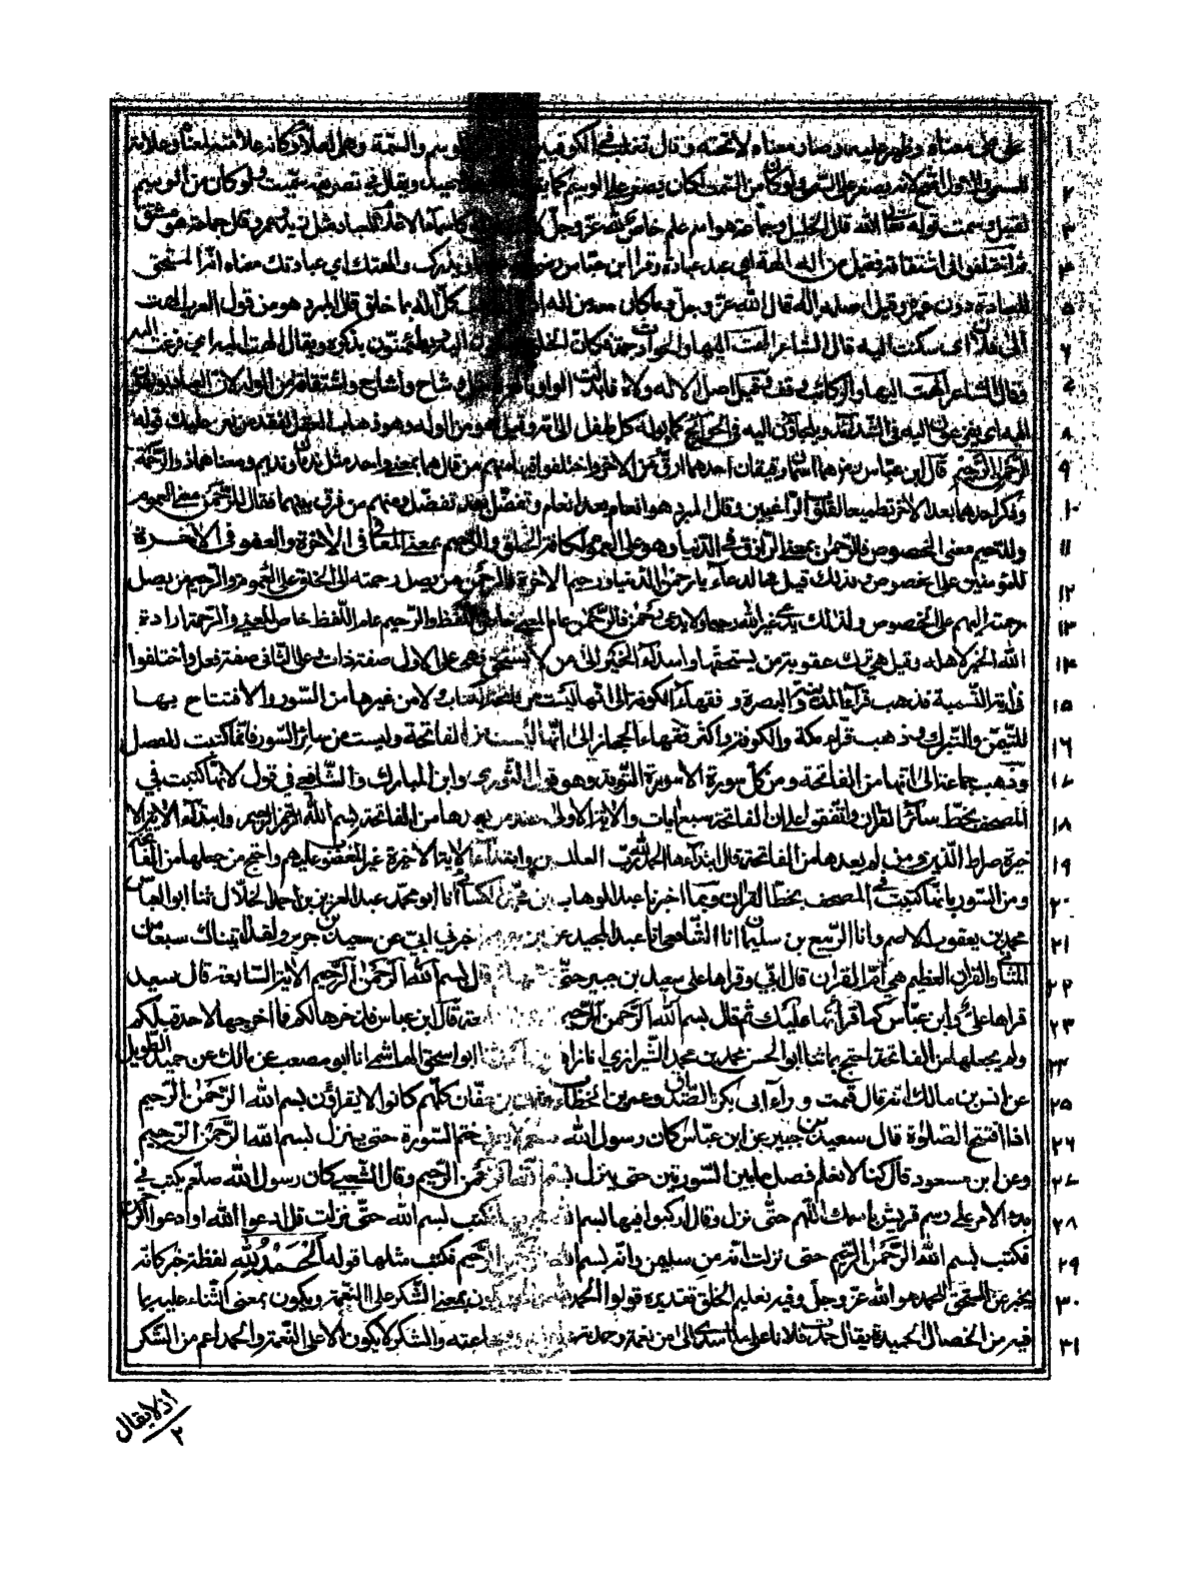 على معناه وظهر عليه وصار معناه لا تحته وقال ثعلب من الكوفيين الوسم والسمة وهي العلامة وكانه علامة لمعناه وعلامة
للمسمى والاول اصح لانه يصغر على السمى ولو كان من السمة لكان يصغر على الوسيم كما ويقال في تصريفه سميت ولو كان من الوسم
لقيل وسمت قوله تعالى الله قال الخليل وجماعة هو اسم علم خاص لله عز وجل كاسماء الاعلام للعباد مثل زيد وعمرو وقال جماعة هو مشتق
ثم اختلفوا في اشتقاقه فقيل من اله الهة اي عبد عبادة وقرأ ابن عباس ويذرك والهتك اي عبادتك معناه انه المستحق
للعبادة دون غيره وقيل اصله اله قال الله عز وجل وما كان معه من اله كل اله بما خلق قال المبرد هو من قول العرب الهت
الى فلان اى سكنت اليه قال الشاعر الهت اليها والحوادث جمة فكان الخلق يطمئنون بذكره ويقال الهت اليه اي فزعت اليه
وقال الشاعر الهت اليها والركائب وقف وقيل اصل الاله ولاه فابدلت الواو وشاح واشاح واشتقاقه من الوله لان العباد
اليه اى يفزعون اليه في الشدائد ويلجاؤن اليه في الحوائج كما يوله كل طفل الى امه وقيل هو من الوله وهو ذهاب العقل لفقد من يعز عليك قوله
الرحمن الرحيم قال ابن عباس رضي هما اسمان رقيقان احدهما ارق من الآخر واختلفوا فيهما منهم من قال هما بمعنى واحد مثل ندمان ونديم ومعناهما ذو الرحمة
وذكر احدهما بعد الآخر تطميعا لقلوب الراغبين وقال المبرد هو انعام بعد انعام وتفضل بعد تفضل ومنهم من فرق بينهما فقال للرحمن معنى العموم
وللرحيم معنى الخصوص فالرحمن بمعنى الرازق في الدنيا وهو على العموم لكافة الخلق والرحيم بمعنى المعافي في الآخرة والعفو في الآخرة
للمؤمنين على الخصوص ولذلك قيل في الدعاء يا رحمن الدنيا ورحيم الآخرة فالرحمن من يصل رحمته الى الخلق على العموم والرحيم من يصل
رحمته اليهم على الخصوص ولذلك يدعى غير الله رحيما ولا يدعى رحمن فالرحمن عام المعنى خاص اللفظ والرحيم عام اللفظ خاص المعنى والرحمة ارادة
الله الخير لاهله وقيل هي ترك عقوبة من يستحقها واسداء الخير الى من لا يستحق فهي على الاول صفة ذات وعلى الثاني صفة فعل واختلفوا
في آية التسمية فذهب قراء المدينة والبصرة وفقهاء الكوفة الى انها ليست من فاتحة الكتاب ولا من غيرها من السور والافتتاح بها
للتيمن والتبرك وذهب قراء مكة والكوفة واكثر فقهاء الحجاز الى انها من الفاتحة وليست من سائر السور وانما كتبت للفصل
وذهب جماعة الى انها من الفاتحة ومن كل سورة الا سورة التوبة وهو قول الثوري وابن المبارك والشافعي في قول لانها كتبت في
المصحف بخط سائر القرآن واتفقوا على ان الفاتحة سبع آيات والآية الاولى عند من يعدها من الفاتحة بسم الله الرحمن الرحيم وابتداء الآية الا
خيرة صراط الذين ومن لم يعدها من الفاتحة قال ابتداءها الحمد لله رب العلمين وابتداء الآية الاخيرة غير المغضوب عليهم واحتج من جعلها من الفاتحة
ومن السور بانها كتبت في المصحف بخط القرآن وبما اخبرنا عبد الوهاب بن محمد الكسائي انا ابو محمد عبد العزيز بن احمد الخلال ثنا ابو العباس
محمد بن يعقوب الاصم وانا الربيع بن سليمان انا الشافعي انا عبد المجيد عن ابن جريج اخبرني ابي عن سعيد بن جبير ولقد آتيناك سبعا من
المثاني والقرآن العظيم هي ام القرآن قال ابي وقرأها على سعيد بن جبير حتى قال بسم الله الرحمن الرحيم الآية السابعة قال سعيد
قرأها علي ابن عباس كما قرأتها عليك ثم قال بسم الله الرحمن الرحيم قال ابن عباس فذخرها لكم فما اخرجها لاحد قبلكم
ولم يجعلها من الفاتحة احتج بما ثنا ابو الحسن محمد بن محمد الشيرازي انا زاهر ابو اسحق الهاشمي انا ابو مصعب عن مالك عن حميد الطويل
عن انس بن مالك انه قال قمت وراء ابي بكر الصديق وعمر بن الخطاب وعثمان بن عفان كلهم كانوا لا يقرأون بسم الله الرحمن الرحيم
اذا افتتح الصلوة قال سعيد بن جبير عن ابن عباس كان رسول الله صلعم لا يعرف ختم السورة حتى ينزل بسم الله الرحمن الرحيم
وعن ابن مسعود قال كنا لا نعلم فصل ما بين السورتين حتى ينزل بسم الله الرحمن الرحيم وقال الشعبي كان رسول الله صلعم يكتب في
بدء الامر على رسم قريش باسمك اللهم حتى نزل وقال اركبوا فيها بسم الله فكتب بسم الله حتى نزلت قل ادعوا الله او ادعوا الرحمن
فكتب بسم الله الرحمن حتى نزلت انه من سليمن وانه بسم الله الرحمن الرحيم فكتب مثلها قوله الحمد لله لفظه خبر كانه
يخبر عن المستحق للحمد هو الله عز وجل وفيه تعليم الخلق تقديره قولوا الحمد لله والحمد يكون بمعنى الشكر على النعمة ويكون بمعنى الثناء عليه بما
فيه من الخصال الحميدة يقال حمدت فلانا على ما اسدى الي من نعمة وحمدته على شجاعته والشكر لا يكون الا على النعمة والحمد اعم من الشكر
اذ لا يقال
٢